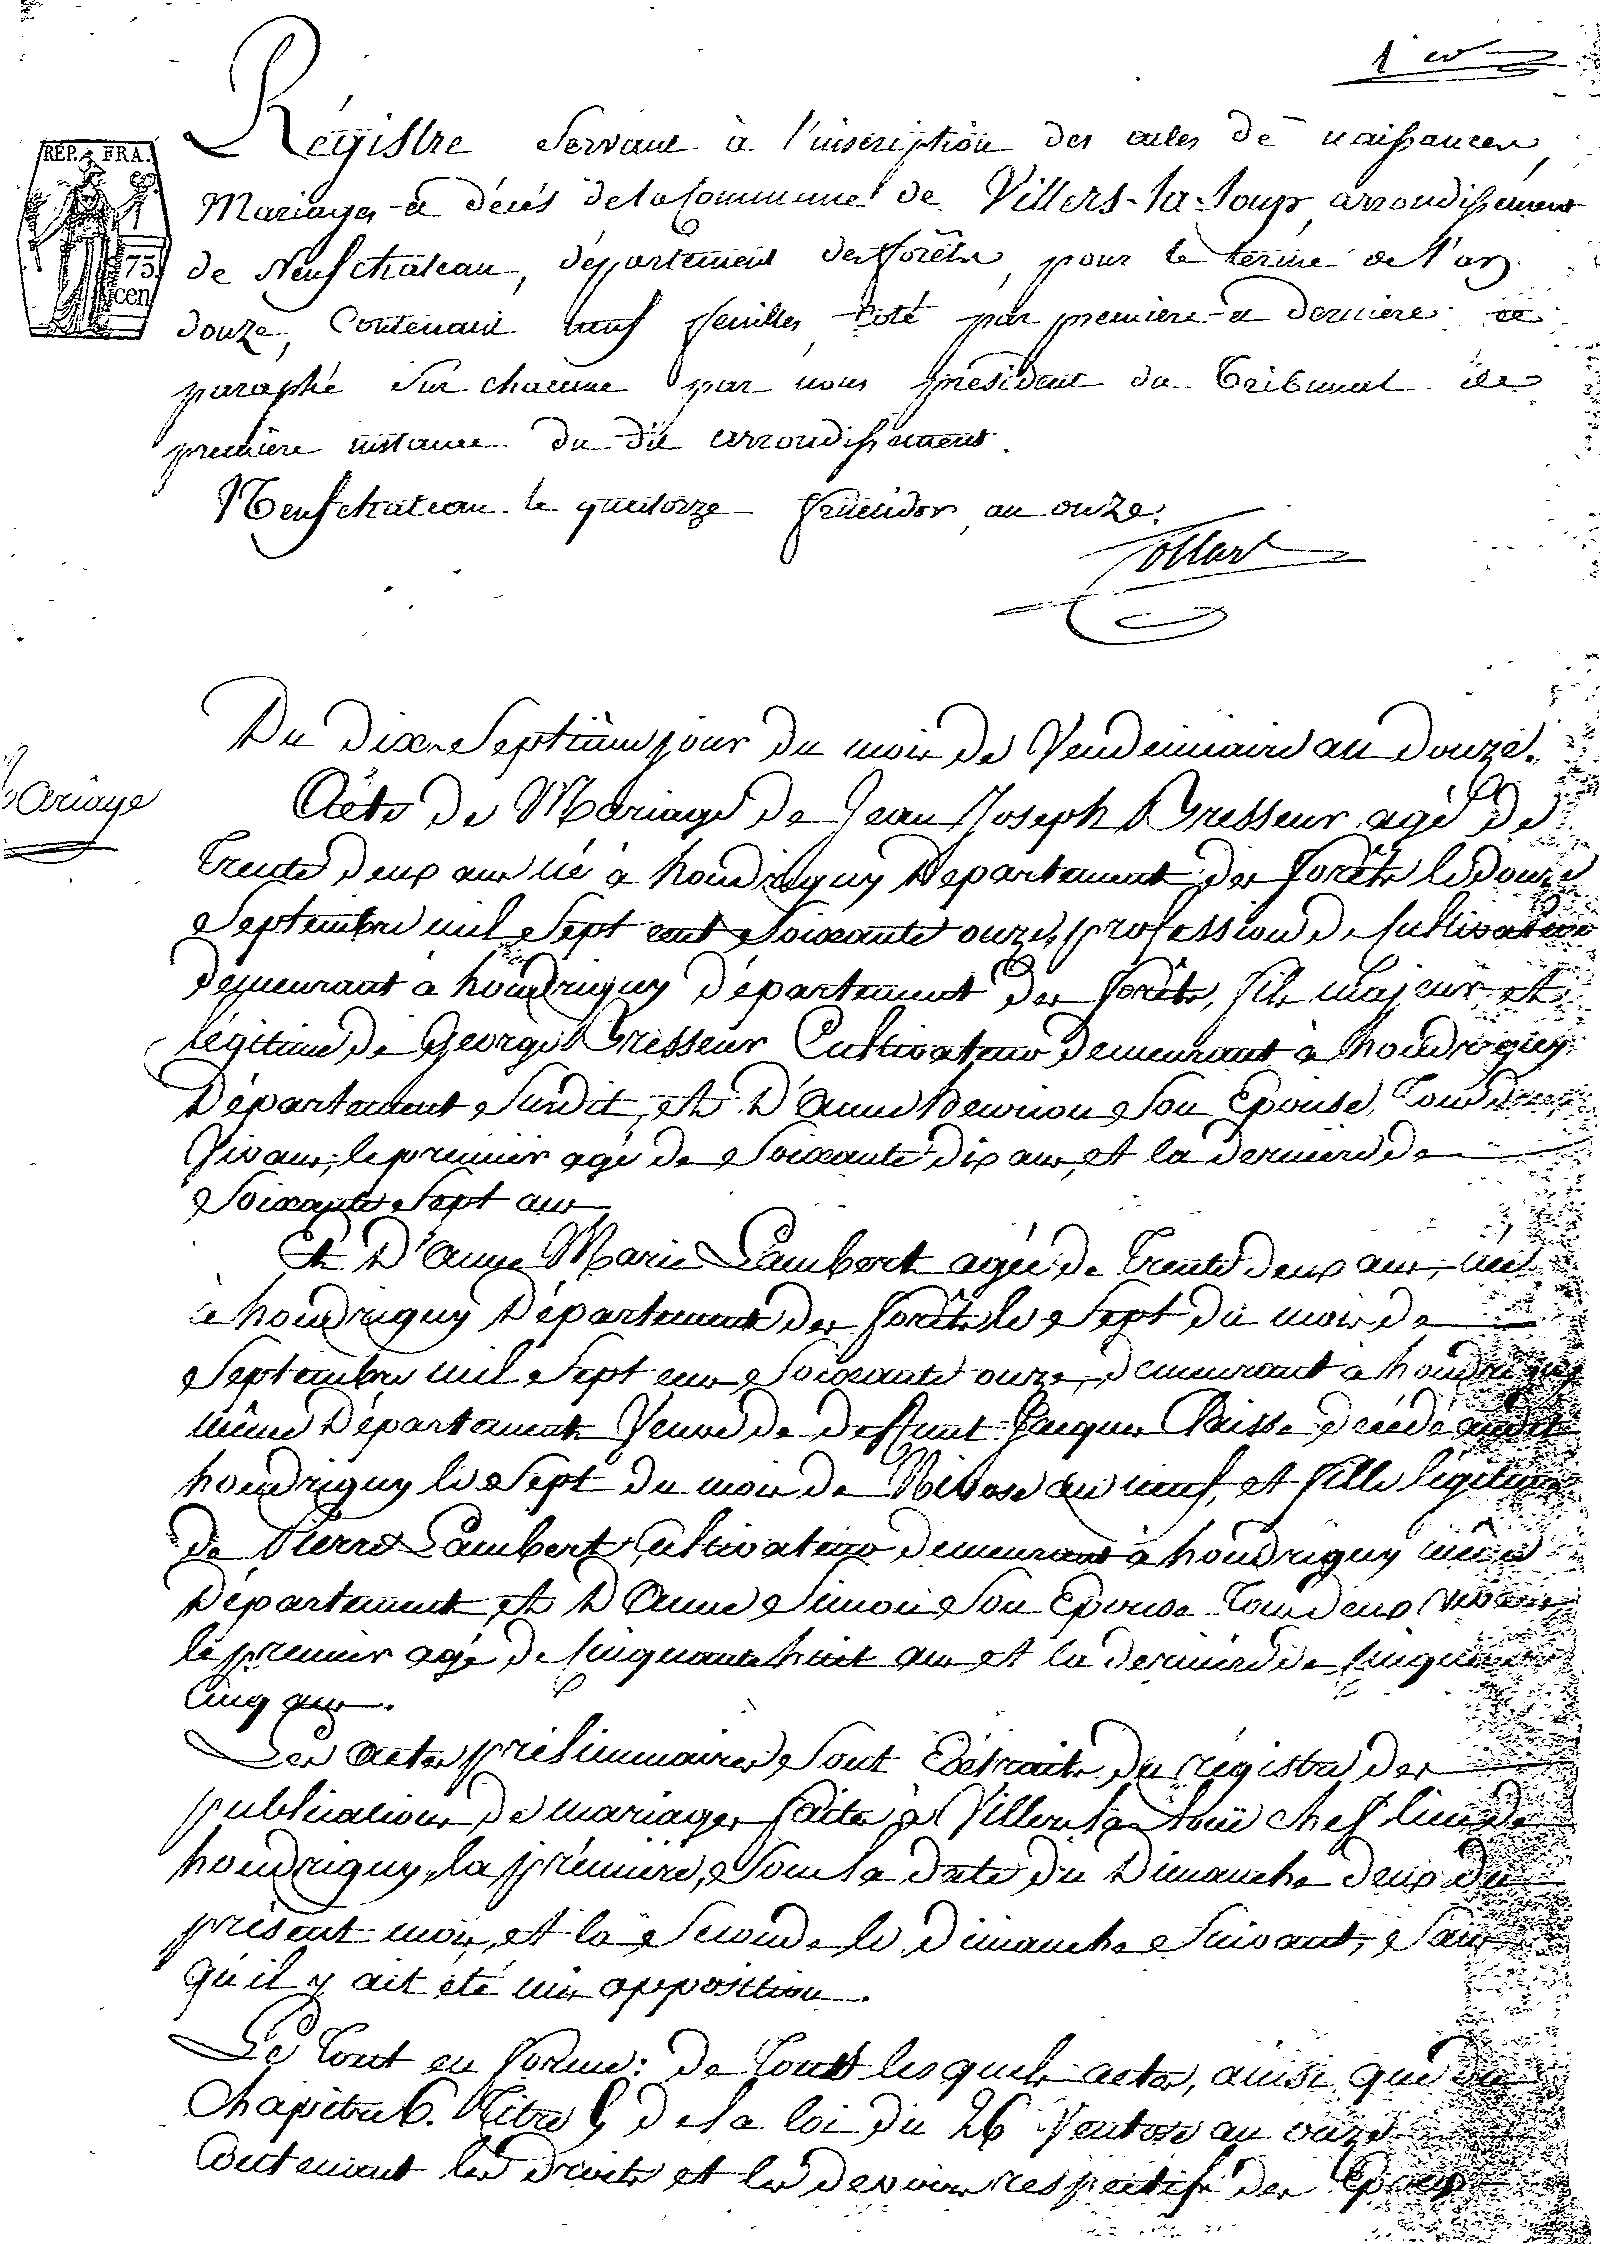 1er
Régistre servant à l'inscription des actes de naissances,
Mariages et décés de la Commune de Villers-la-Loup, arrondissement
REP. FRA.
75.
cen
de Neufchateau, département des forêts, pour le terme de l'an
douze, Contenant neuf feuilles, coté par premiere et derniere et
paraphé sur chacune par nous président du Tribunal de
premiere instance du dit arrondissement.
Neufchateau le quatorze fructidor an onze.
Collart
Du dix Septieme jour du mois de Vendemiaire an douze.
Mariage
Acte de Mariage de Jean Joseph Bresseur agé de
Trente deux ans né à houdrigny Département des forêts le douze
Septembre mil Sept cent Soixante onze, profession de Cultivateur
demeurant à houdrigny Département des forêts, fils majeur et
légitime de George Bresseur Cultivateur demeurant à houdrigny
Département Susdit, et D'Anne son Epouse, Tous deux
Vivans, le premier agé de Soixante dix ans, et la derniere de
Soixante Sept ans
Et D'Anne Marie Lambert agée de Trente deux ans, née
à houdrigny Département des forêts le Sept du mois de
Septembre mil Sept cens Soixante onze, demeurant à houdrigny
même Département Veuve de deffunt Jacques Claisse décédé audit
houdrigny le Sept du mois de Nivose an neuf, et fille légitime
de Pierre Lambert Cultivateur demeurant à houdrigny même
Département et D'Anne Simon Son Epouse Tous deux vivans
le premier agé de Cinquante huit ans et la derniere de Cinquante
Cinq ans.
Les actes préliminaires Sont Extraits du régistre des
publications de mariages faites à Villers la Loüe chef lieu de
houdrigny, la prémière, Sous la date du Dimanche deux du
présent mois, et la Seconde le dimanche Suivant, Sans
qu'il y ait été mis opposition.
Le Tout en forme: de Tous lesquels actes, ainsi que du
Chapitre 6. Titre 5 de la loi du 26 Ventose an onze
Contenant les droits et les devoirs respectifs des Epoux